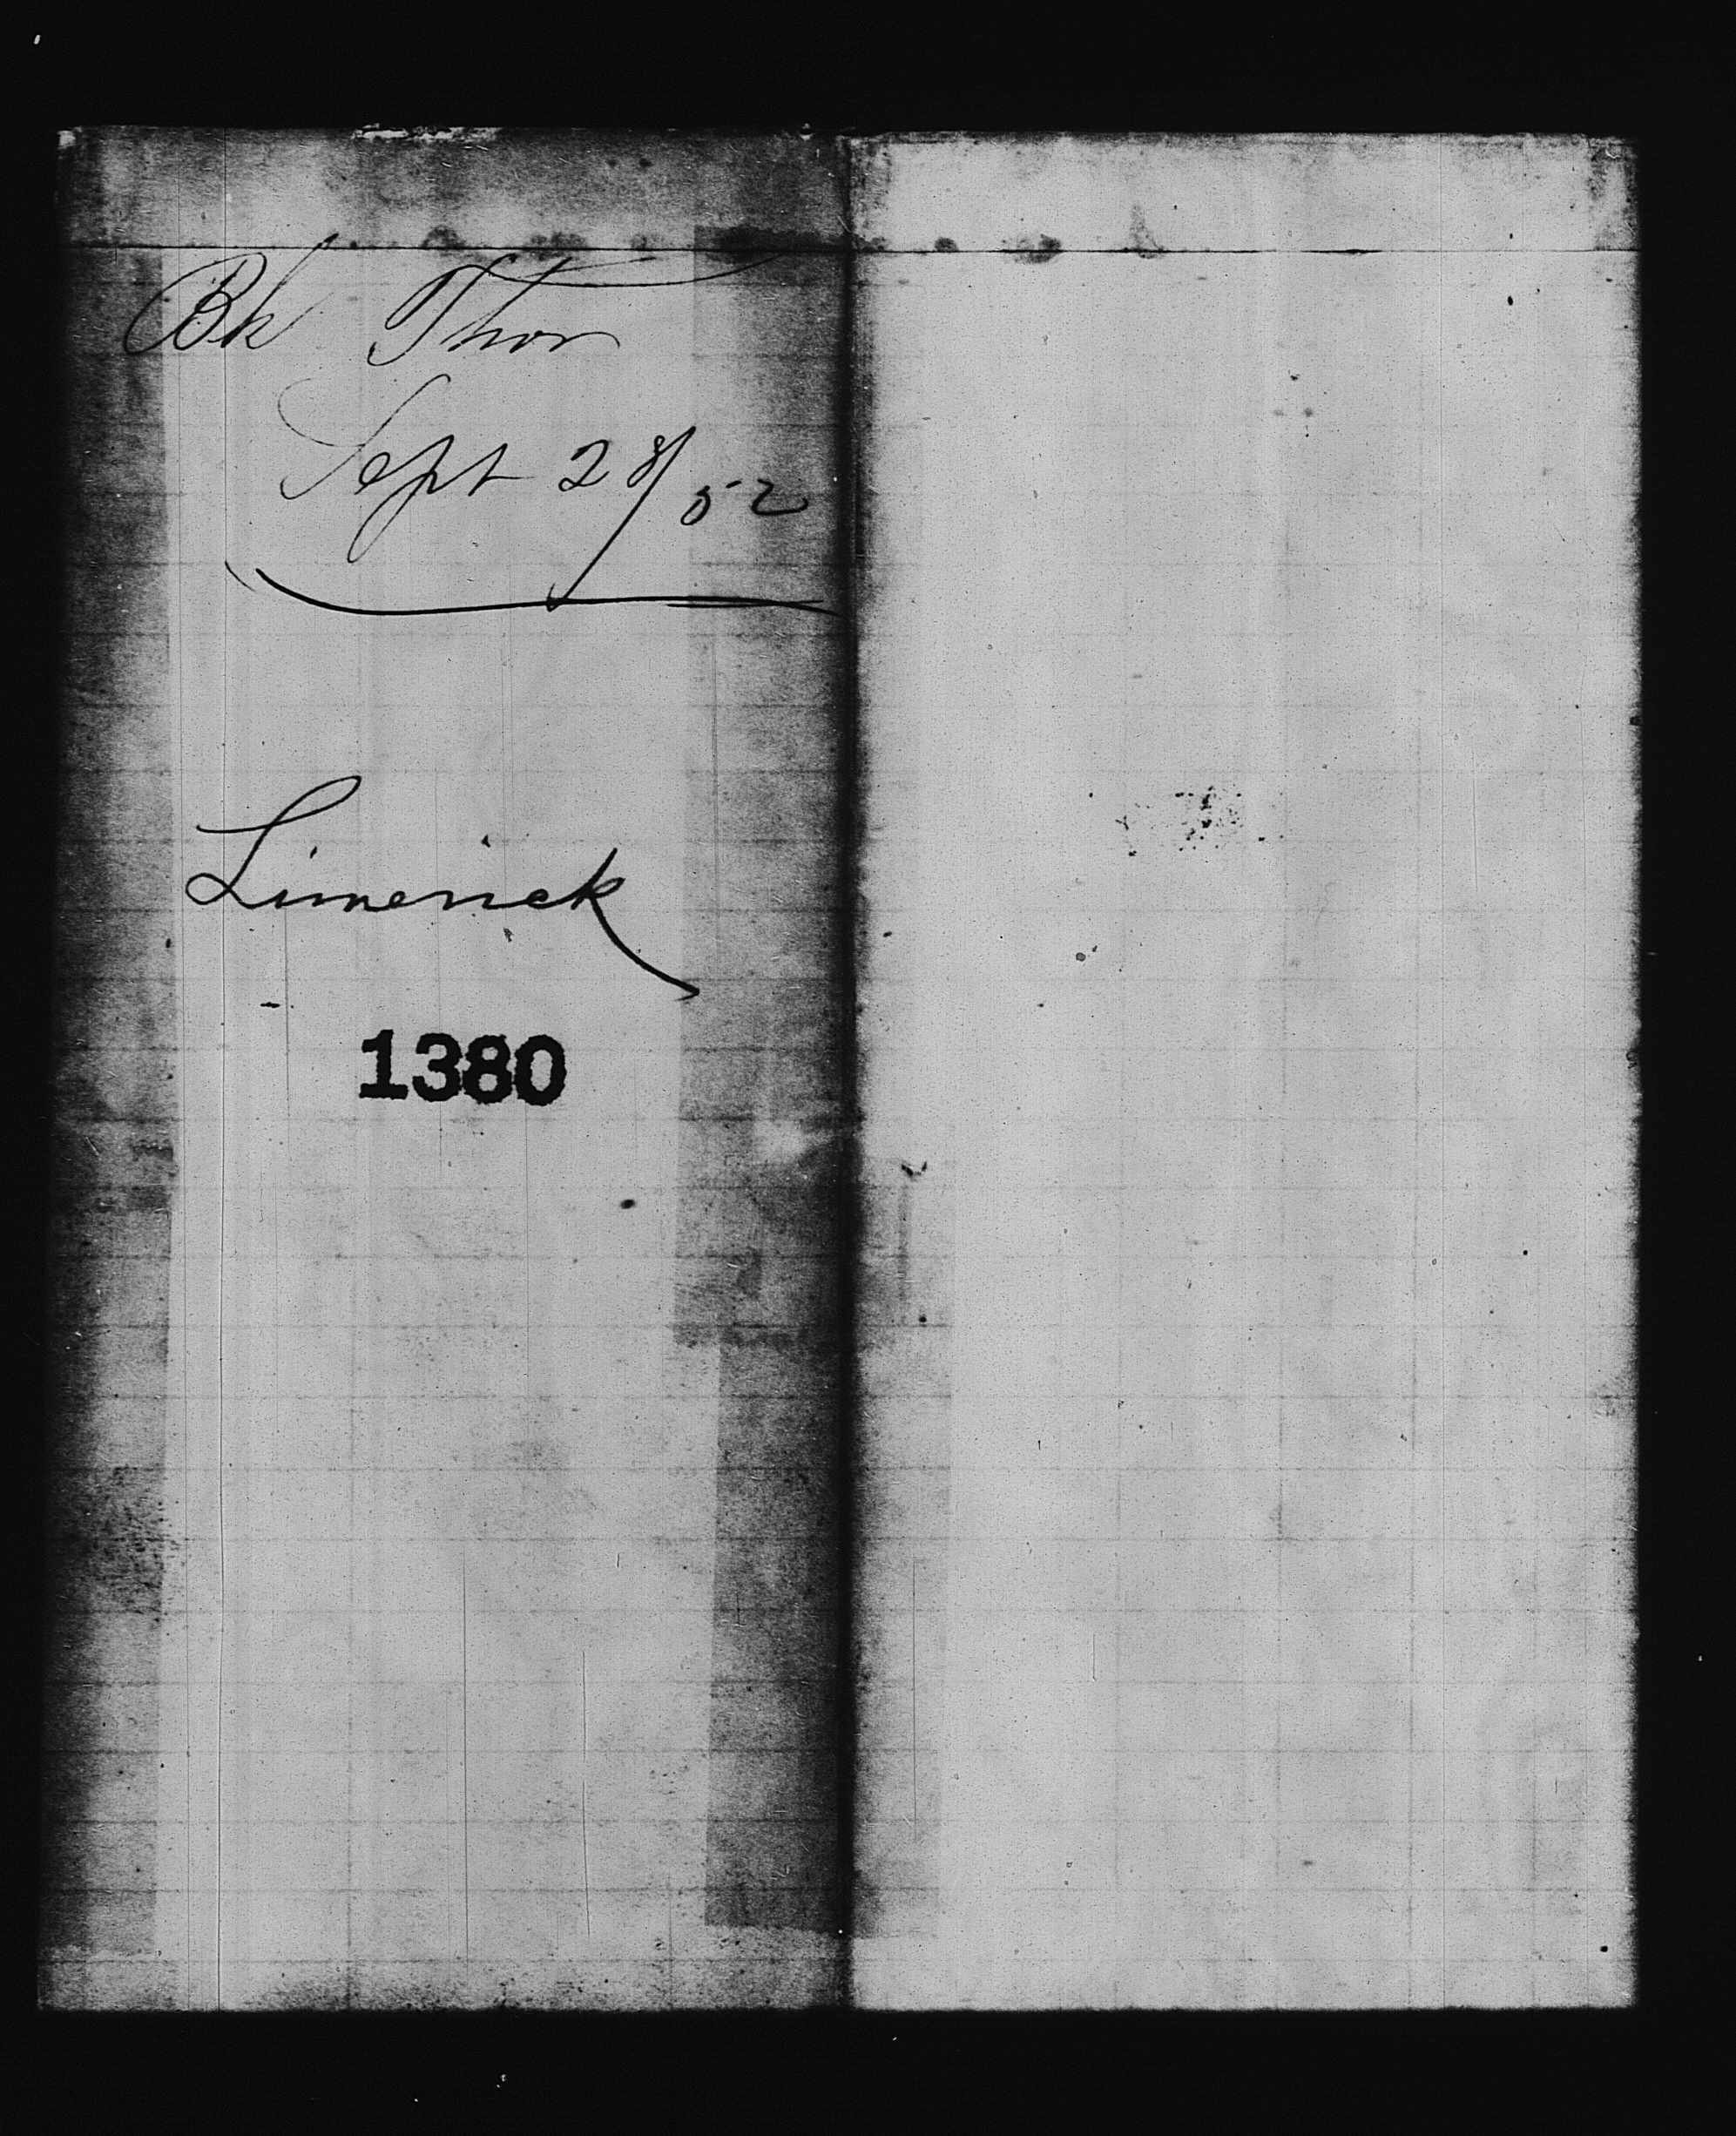 Bk Thor
Sept 28/52
Limerick
1380